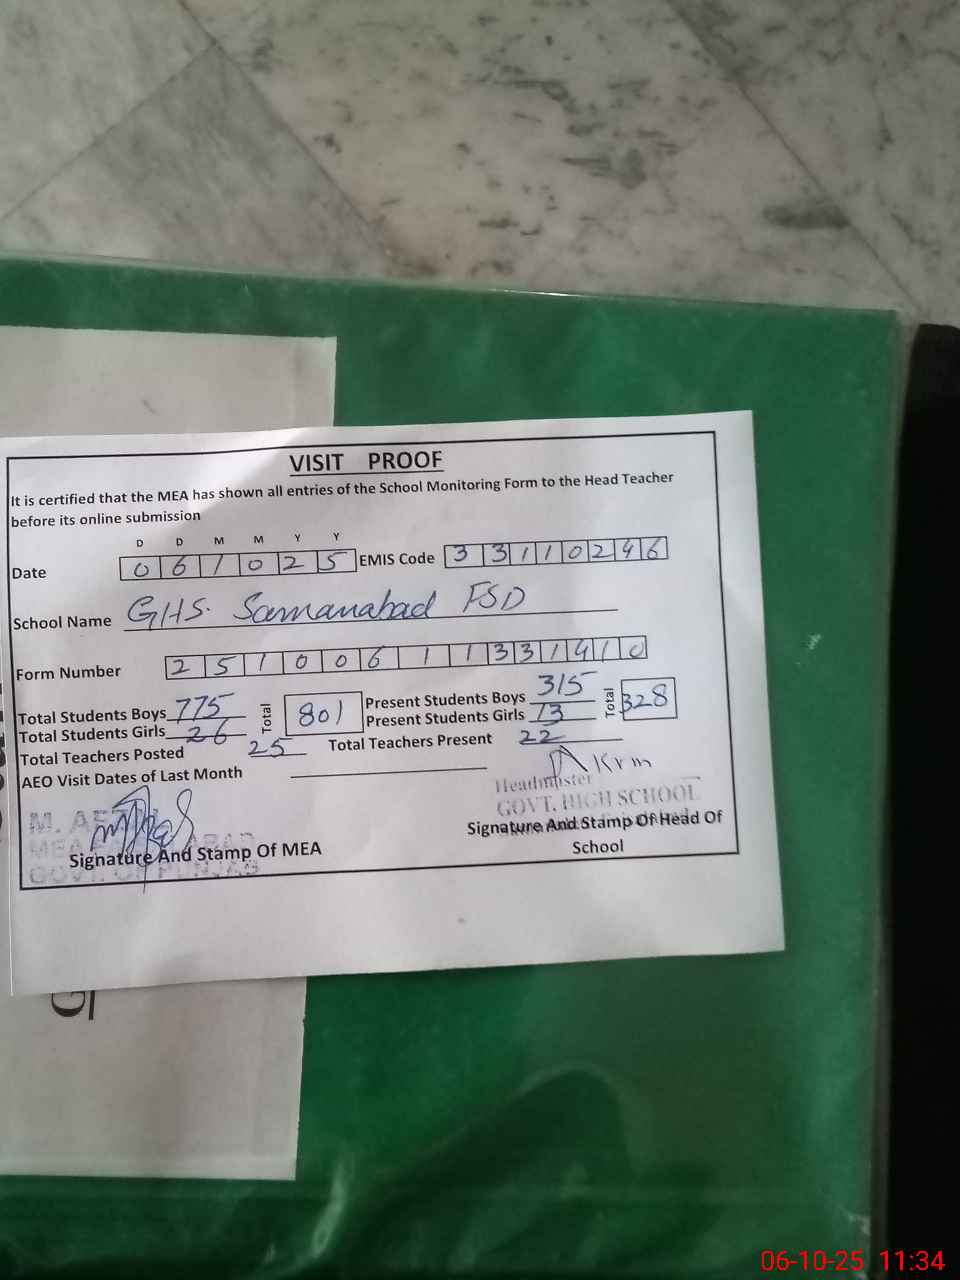 VISIT PROOF
It is certified that the MEA has shown all entries of the School Monitoring Form to the Head Teacher
before its online submission
D D M M Y Y
Date 0 6 1 0 2 5 EMIS Code 3 3 1 1 0 2 4 6
School Name GHS. Samanabad FSD
Form Number 2 5 1 0 0 6 1 1 3 3 1 4 1 0
Total Students Boys 775 Total 801 Present Students Boys 315 Total 328
Total Students Girls 26 Present Students Girls 13
Total Teachers Posted 25 Total Teachers Present 22
AEO Visit Dates of Last Month
Headmaster
GOVT. HIGH SCHOOL
M.
MEA
GOVT. OF PUNJAB
Signature And Stamp Of MEA
Signature And Stamp Of Head Of
School
G
06-10-25 11:34